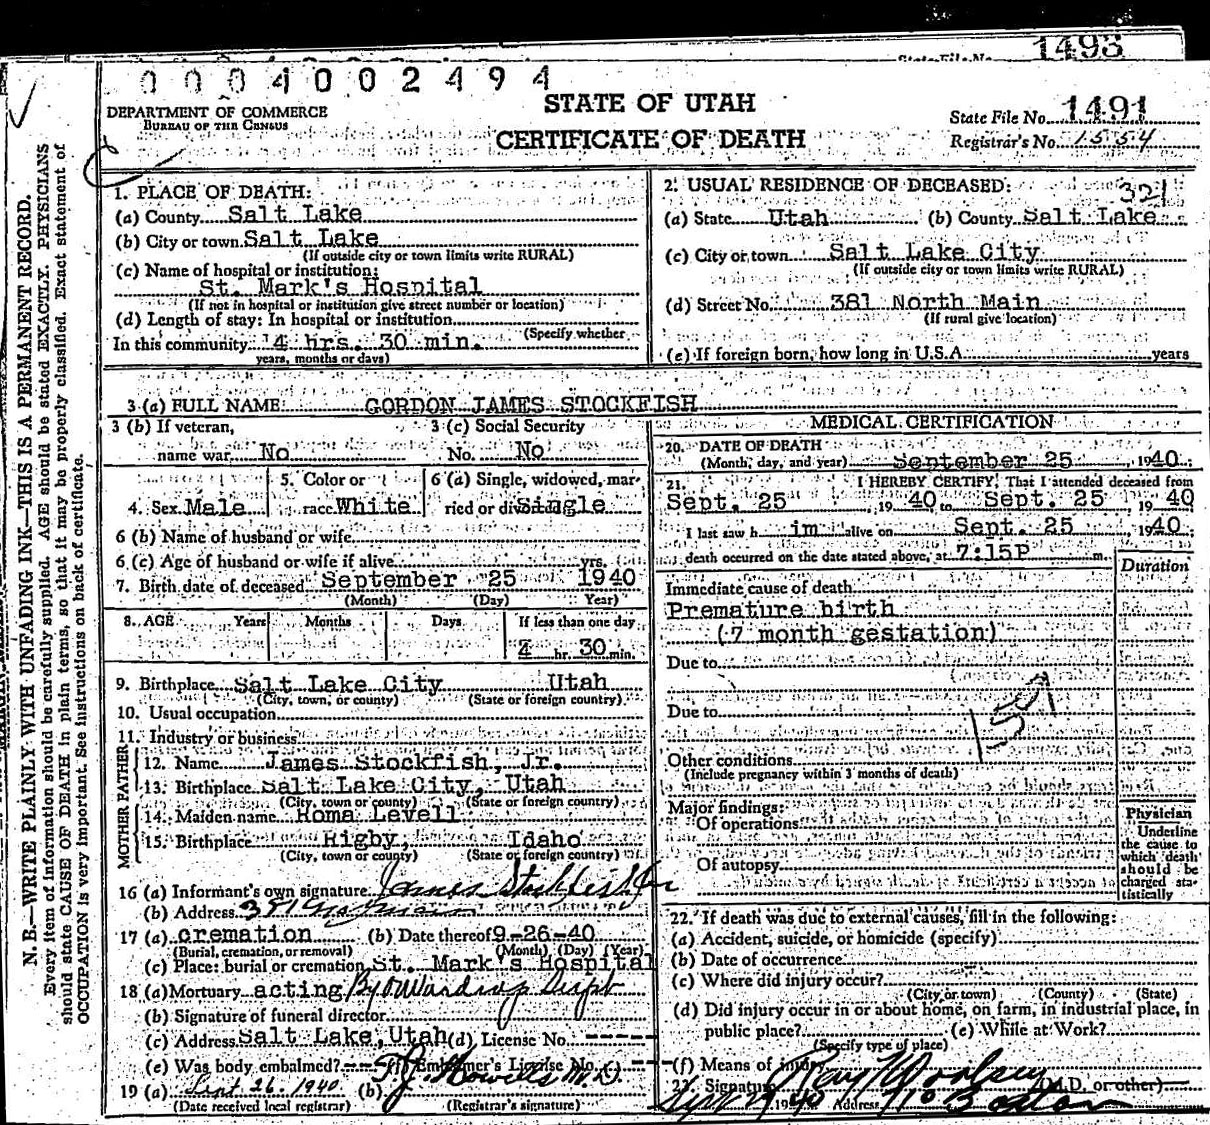 1493
State File No.
0004002494
DEPARTMENT OF COMMERCE
BUREAU OF THE CENSUS
STATE OF UTAH
CERTIFICATE OF DEATH
State File No. 1491
Registrar's No. 1554
N. B.—WRITE PLAINLY WITH UNFADING INK—THIS IS A PERMANENT RECORD.
Every item of information should be carefully supplied. AGE should be stated EXACTLY. PHYSICIANS
should state CAUSE OF DEATH in plain terms, so that it may be properly classified. Exact statement of
OCCUPATION is very important. See instructions on back of certificate.
1. PLACE OF DEATH:
(a) County Salt Lake
(b) City or town Salt Lake
(If outside city or town limits write RURAL)
(c) Name of hospital or institution:
St. Mark's Hospital
(If not in hospital or institution give street number or location)
(d) Length of stay: In hospital or institution
(Specify whether
In this community 4 hrs. 30 min.
years, months or days)
2. USUAL RESIDENCE OF DECEASED: 321
(a) State Utah (b) County Salt Lake
(c) City or town Salt Lake City
(If outside city or town limits write RURAL)
(d) Street No. 381 North Main
(If rural give location)
(e) If foreign born, how long in U.S.A. years
3 (a) FULL NAME GORDON JAMES STOCKFISH
3 (b) If veteran, 3 (c) Social Security
name war No No. No
4. Sex Male 5. Color or race White 6 (a) Single, widowed, married or divorced Single
6 (b) Name of husband or wife
6 (c) Age of husband or wife if alive yrs.
7. Birth date of deceased September 25 1940
(Month) (Day) Year)
8. AGE Years Months Days If less than one day
4 hr. 30 min.
9. Birthplace Salt Lake City Utah
(City, town, or county) (State or foreign country)
10. Usual occupation
11. Industry or business
FATHER
12. Name James Stockfish, Jr.
13. Birthplace Salt Lake City, Utah
(City, town or county) (State or foreign country)
MOTHER
14. Maiden name Roma Levell
15. Birthplace Rigby, Idaho
(City, town or county) (State or foreign country)
16 (a) Informant's own signature James Stockfish Jr
(b) Address 381 No Main
17 (a) cremation (b) Date thereof 9-26-40
(Burial, cremation, or removal) (Month) (Day) (Year)
(c) Place: burial or cremation St. Mark's Hospital
18 (a) Mortuary acting By
(b) Signature of funeral director
(c) Address Salt Lake, Utah (d) License No. -----
(e) Was body embalmed? (f) Embalmer's License No.
19 (a) Sept 26. 1940 (b) Howells M.D.
(Date received local registrar) (Registrar's signature)
MEDICAL CERTIFICATION
20. DATE OF DEATH
(Month, day, and year) September 25 1940
21. I HEREBY CERTIFY, That I attended deceased from
Sept. 25 1940 to Sept. 25 1940
I last saw him alive on Sept. 25 1940
death occurred on the date stated above, at 7:15P m.
Duration
Immediate cause of death
Premature birth
(7 month gestation)
Due to
Due to
Other conditions
(Include pregnancy within 3 months of death)
Major findings:
Of operations
Of autopsy
Physician
Underline
the cause to
which death
should be
charged sta-
tistically
22. If death was due to external causes, fill in the following:
(a) Accident, suicide, or homicide (specify)
(b) Date of occurrence
(c) Where did injury occur?
(City or town) (County) (State)
(d) Did injury occur in or about home, on farm, in industrial place, in
public place? (e) While at Work?
(Specify type of place)
(f) Means of injury
23. Signature Ray Woolsey (M.D. or other)
Sept 1940 Address 710 Boston